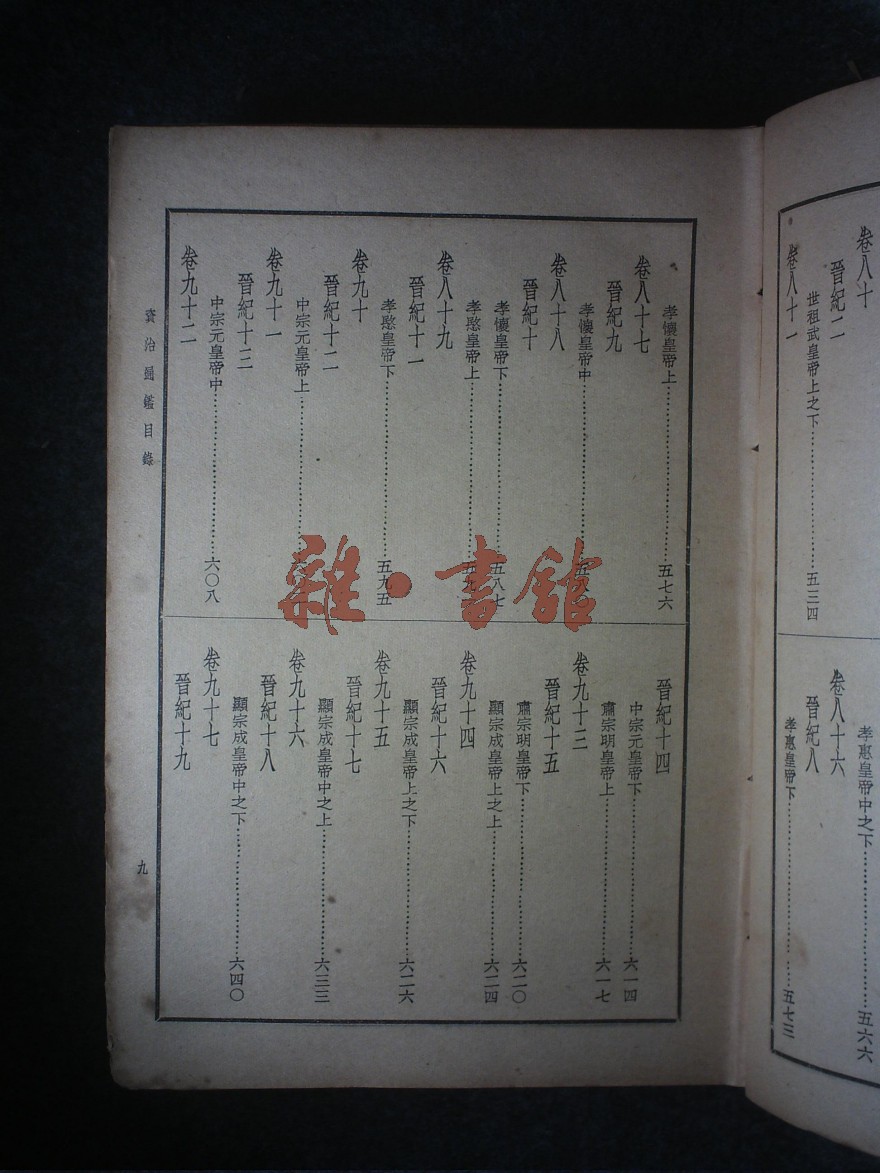 卷八十
晉紀二
世祖武皇帝上之下……五三四
卷八十一
孝惠皇帝中之下……五六六
卷八十六
晉紀八
孝惠皇帝下……五七三
孝懷皇帝上……五七六
卷八十七
晉紀九
孝懷皇帝中……
卷八十八
晉紀十
孝懷皇帝下……五八七
孝愍皇帝上……
卷八十九
晉紀十一
孝愍皇帝下……五九五
卷九十
晉紀十二
中宗元皇帝上……
卷九十一
晉紀十三
中宗元皇帝中……六〇八
卷九十二
晉紀十四
中宗元皇帝下……六一四
肅宗明皇帝上……六一七
卷九十三
晉紀十五
肅宗明皇帝下……六二〇
顯宗成皇帝上之上……六二四
卷九十四
晉紀十六
顯宗成皇帝上之下……六二六
卷九十五
晉紀十七
顯宗成皇帝中之上……六三三
卷九十六
晉紀十八
顯宗成皇帝中之下……六四〇
卷九十七
晉紀十九
資治通鑑目錄
九
雜·書館